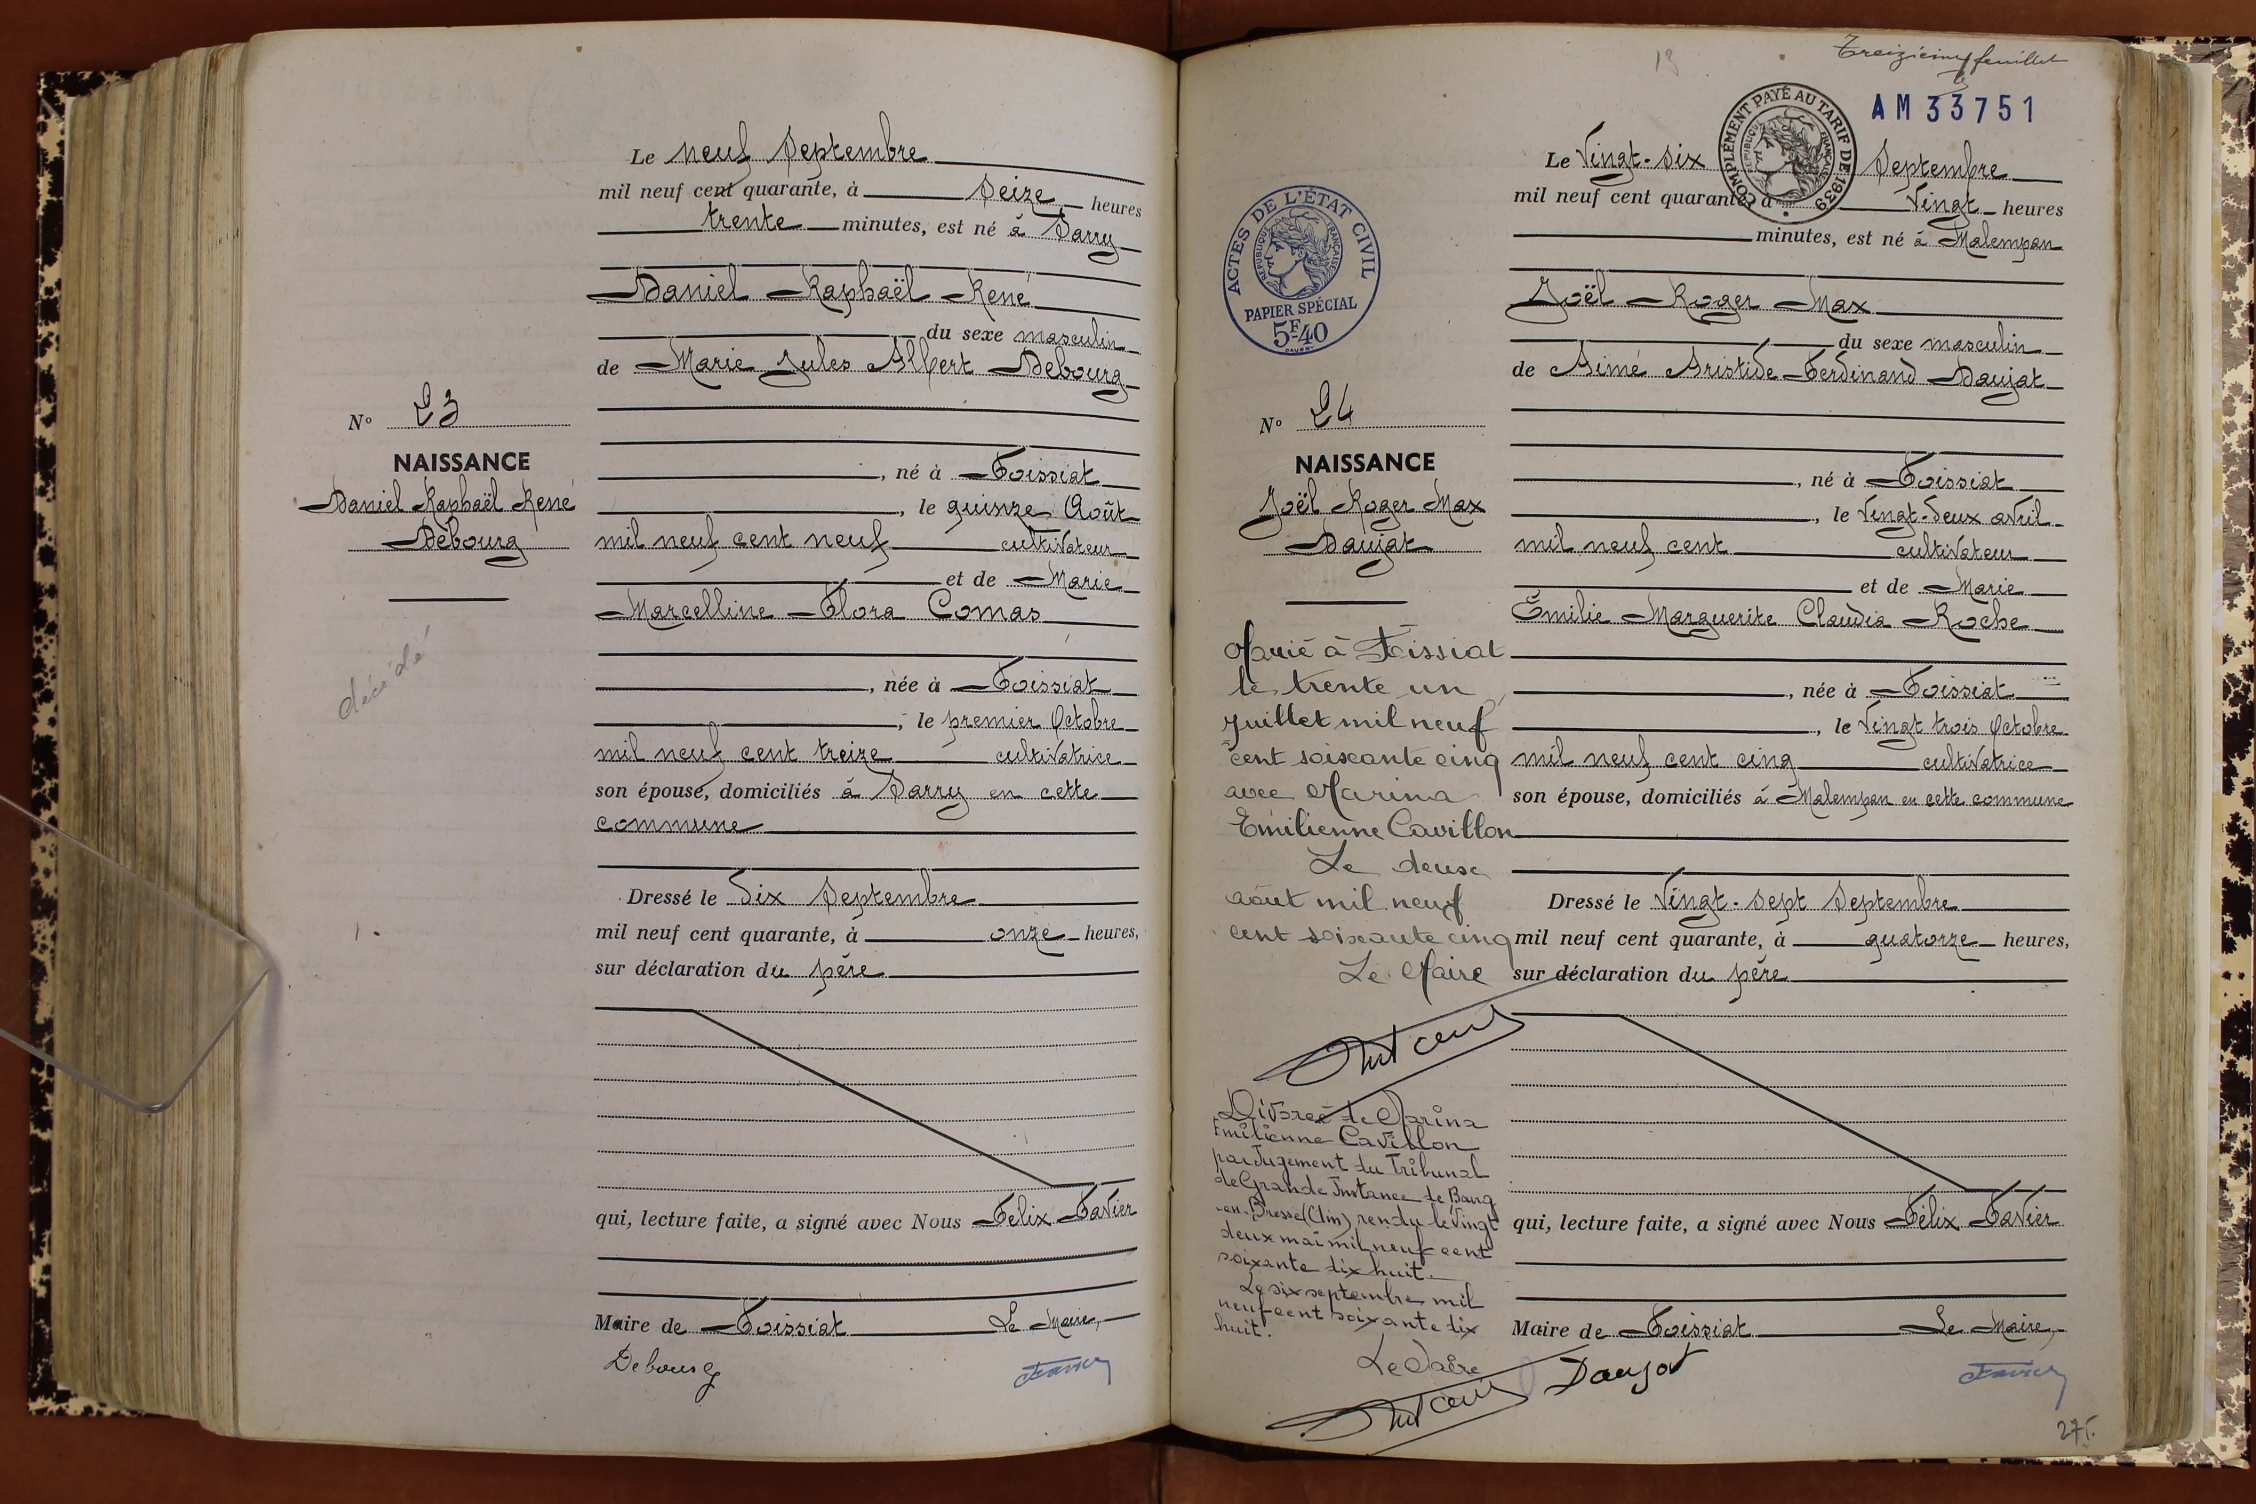 Le neuf Septembre
mil neuf cent quarante, à Seize heures
trente minutes, est né à Sarry
Daniel Raphaël René
du sexe masculin
de Marie Jules Albert Debourg
N° 23
NAISSANCE
Daniel Raphaël René
Debourg
décédé
, né à Foissiat
, le quinze Août
mil neuf cent neuf cultivateur
et de Marie
Marcelline Flora Comas
, née à Foissiat
, le premier Octobre
mil neuf cent treize cultivatrice
son épouse, domiciliés à Sarry en cette
commune
Dressé le dix Septembre
mil neuf cent quarante, à onze heures,
sur déclaration du père
qui, lecture faite, a signé avec Nous Félix Favier
Maire de Foissiat Le Maire,
Debourg Favier
13
Treizième feuillet
AM 33751
COMPLÉMENT PAYÉ AU TARIF DE 1939
RÉPUBLIQUE FRANÇAISE
ACTES DE L'ÉTAT CIVIL
RÉPUBLIQUE FRANÇAISE
PAPIER SPÉCIAL
5F40
Le Vingt-six Septembre
mil neuf cent quarante, à Vingt heures
minutes, est né à Malempan
Joël Roger Max
du sexe masculin
de Aimé Aristide Ferdinand Daujat
N° 24
NAISSANCE
Joël Roger Max
Daujat
, né à Foissiat
, le Vingt-deux avril
mil neuf cent cultivateur
et de Marie
Emilie Marguerite Claudia Roche
, née à Foissiat
, le Vingt trois Octobre
mil neuf cent cinq cultivatrice
son épouse, domiciliés à Malempan en cette commune
Dressé le Vingt-sept Septembre
mil neuf cent quarante, à quatorze heures,
sur déclaration du père
qui, lecture faite, a signé avec Nous Félix Favier
Maire de Foissiat Le Maire,
Daujat Favier
Marié à Foissiat
le trente un
juillet mil neuf
cent soixante cinq
avec Marina
Emilienne Cavillon
Le deux
août mil neuf
cent soixante cinq
Le Maire
Divorcé de Marina
Emilienne Cavillon
par Jugement du Tribunal
de Grande Instance de Bourg
en-Bresse (Ain) rendu le Vingt
deux mai mil neuf cent
soixante dix huit.
Le six septembre mil
neuf cent soixante dix
huit.
Le Maire